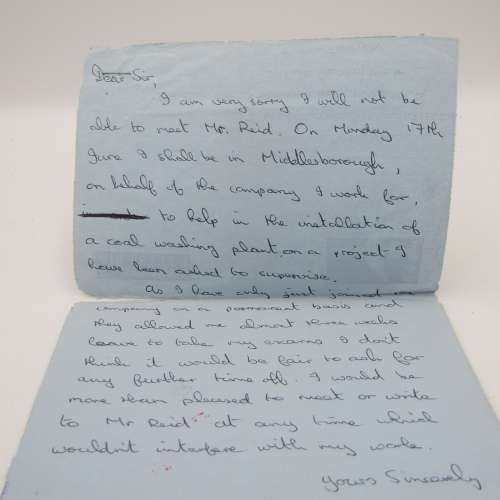 Dear Sir,
I am very sorry I will not be
able to meet Mr. Reid. On Monday 17th
June I shall be in Middlesborough,
on behalf of the company I work for,
to help in the installation of
a coal washing plant, on a project I
have been asked to supervise.
As I have only just joined the
company on a permanent basis and
they allowed me almost three weeks
leave to take my exams I don't
think it would be fair to ask for
any further time off. I would be
more than pleased to meet or write
to Mr Reid at any time which
wouldn't interfere with my work.
Yours Sincerely